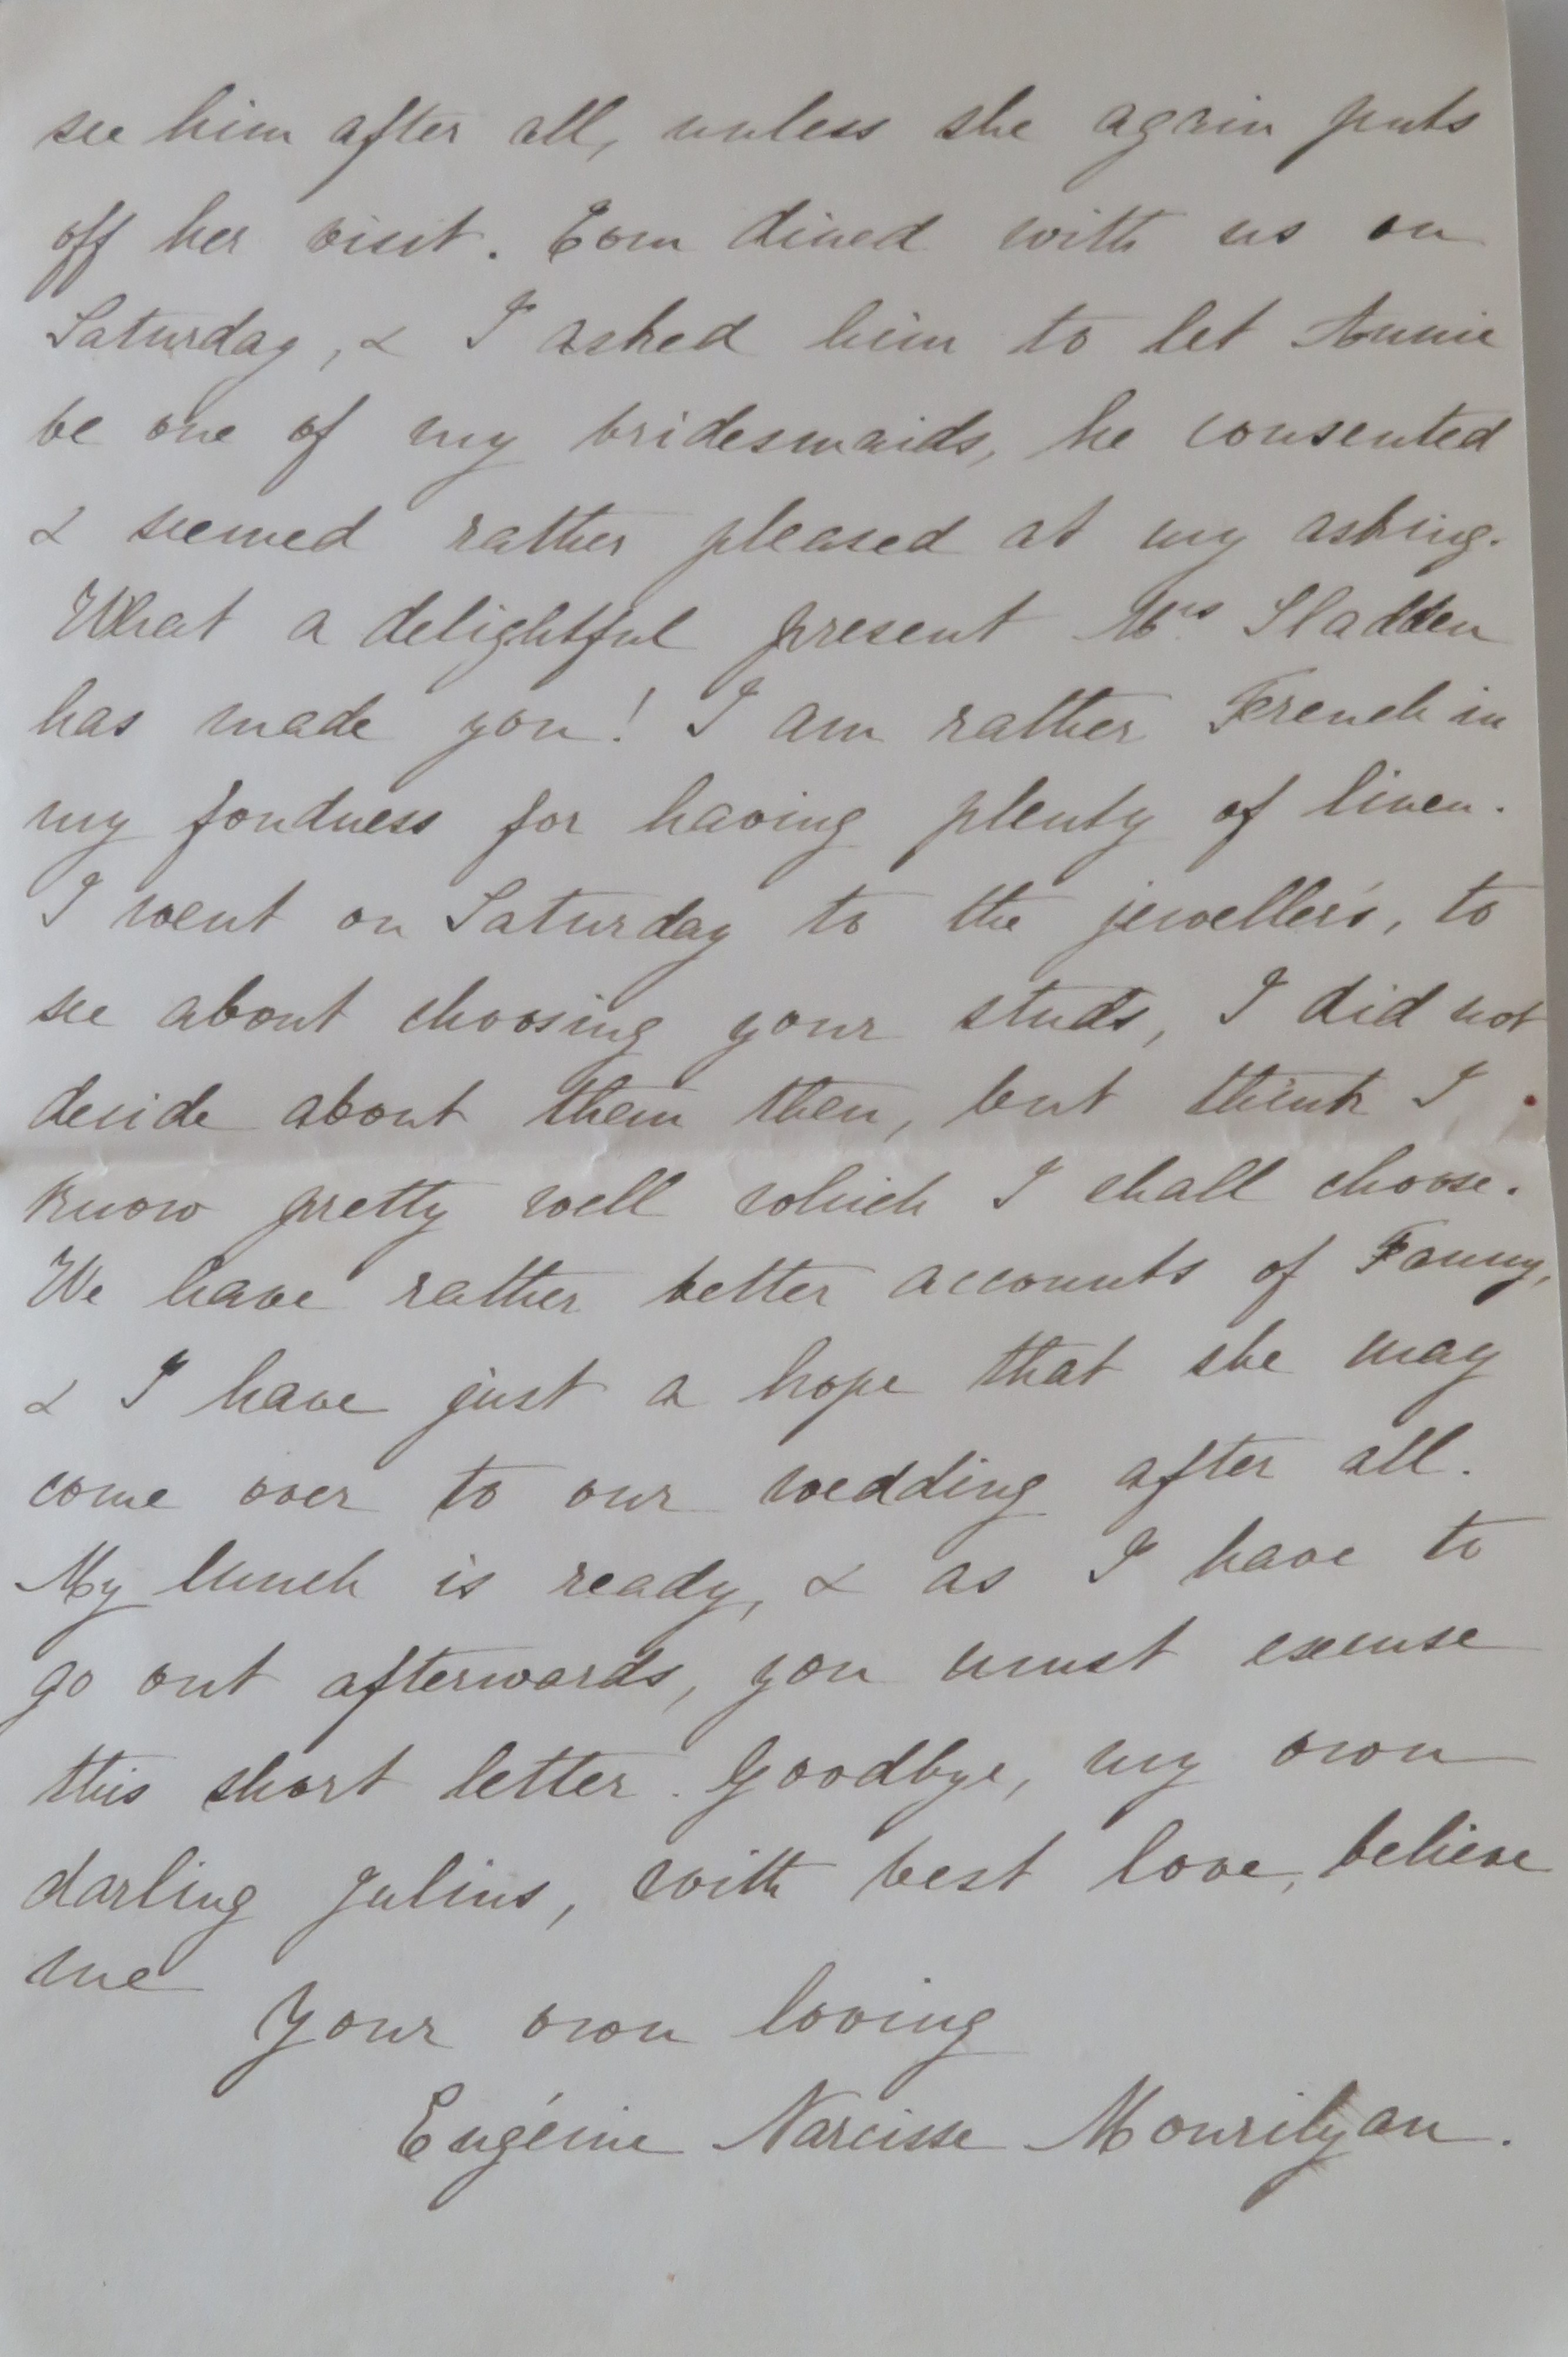 see him after all, unless she again puts
off her visit. Tom dined with us on
Saturday, & I asked him to let Annie
be one of my bridesmaids, he consented
& seemed rather pleased at my asking.
What a delightful present Mrs Sladden
has made you! I am rather French in
my fondness for having plenty of linen.
I went on Saturday to the jeweller's, to
see about choosing your studs, I did not
decide about them then, but think I
know pretty well which I shall choose.
We have rather better accounts of Fanny,
& I have just a hope that she may
come over to our wedding after all.
My lunch is ready, & as I have to
go out afterwards, you must excuse
this short letter. Goodbye, my own
darling Julius, with best love, believe
me
Your own loving
Eugénie Narcisse Mourilyan.